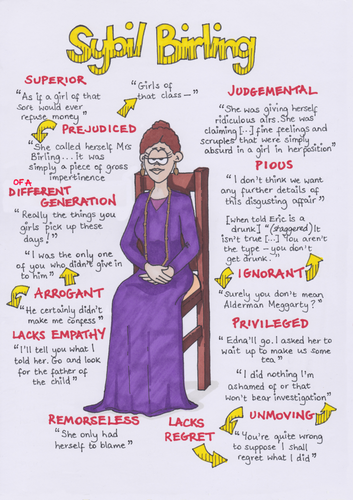 Sybil Birling
SUPERIOR
"As if a girl of that
sort would ever
refuse money"
"Girls of
that class—"
PREJUDICED
"She called herself Mrs
Birling... It was
simply a piece of gross
impertinence
OF A
DIFFERENT
GENERATION
"Really the things you
girls pick up these
days!"
"I was the only one
of you who didn't give in
to him"
ARROGANT
"He certainly didn't
make me confess"
LACKS EMPATHY
"I'll tell you what I
told her. Go and look
for the father of
the child"
REMORSELESS
"She only had
herself to blame"
JUDGEMENTAL
"She was giving herself
ridiculous airs. She was
claiming [...] fine feelings and
scruples that were simply
absurd in a girl in her position"
PIOUS
"I don't think we want
any further details of
this disgusting affair"
[when told Eric is a
drunk] "(staggered) It
isn't true [...] You aren't
the type – you don't
get drunk"
IGNORANT
"Surely you don't mean
Alderman Meggarty?"
PRIVILEGED
"Edna'll go. I asked her
to wait up to make us some
tea"
"I did nothing I'm
ashamed of or that
won't bear investigation"
UNMOVING
LACKS
REGRET
"You're quite wrong
to suppose I shall
regret what I did"